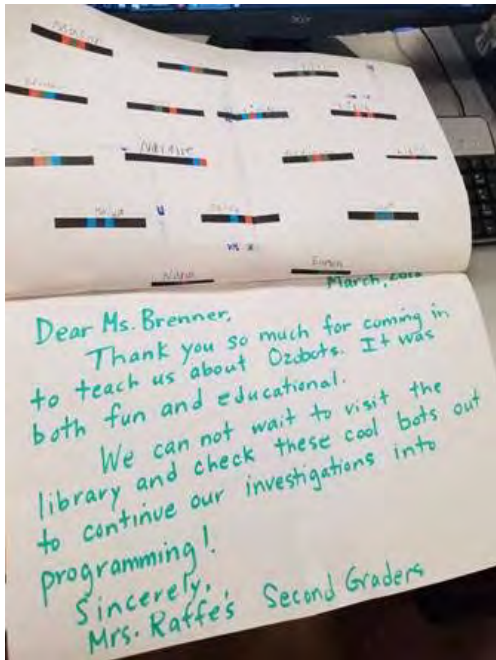 Natalie
Nana
March,
Dear Ms. Brenner,
Thank you so much for coming in
to teach us about Ozobots. It was
both fun and educational.
We can not wait to visit the
library and check these cool bots out
to continue our investigations into
programming!
Sincerely,
Mrs. Raffe's Second Graders